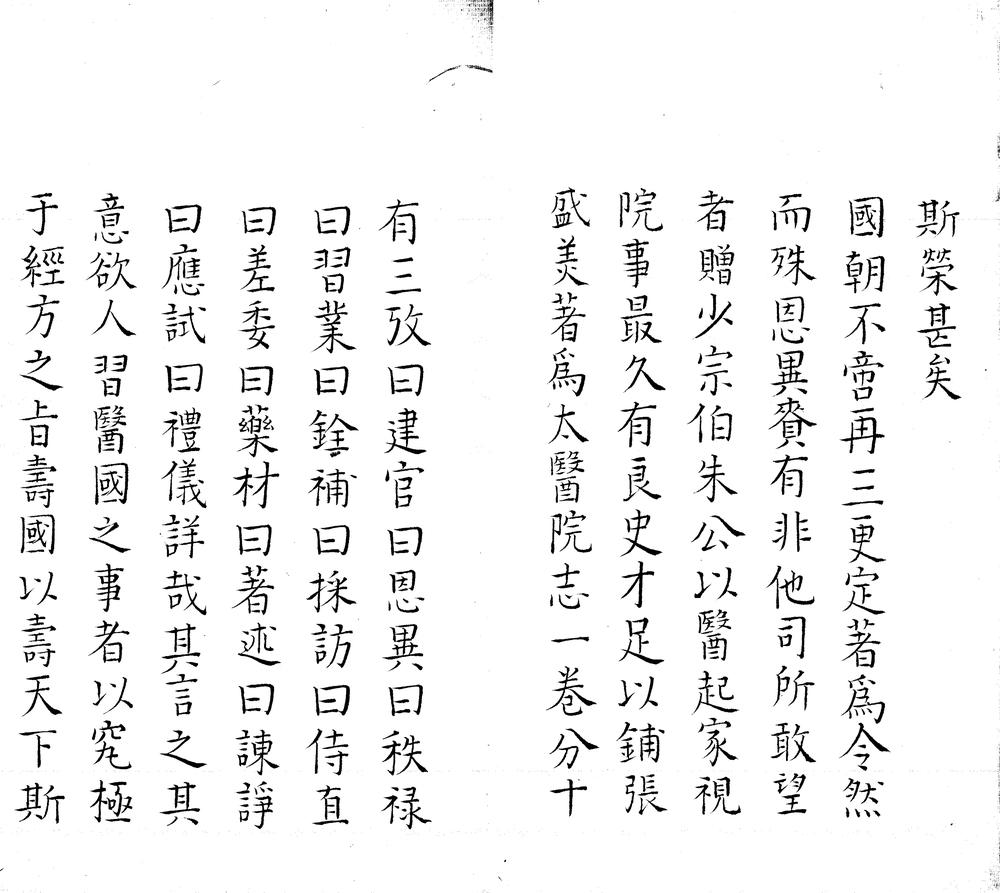 斯榮甚矣
國朝不啻再三更定著爲令然
而殊恩異賚有非他司所敢望
者贈少宗伯朱公以醫起家視
院事最久有良史才足以鋪張
盛美著爲太醫院志一卷分十
有三攷曰建官曰恩異曰秩祿
曰習業曰銓補曰採訪曰侍直
曰差委曰藥材曰著述曰諫諍
曰應試曰禮儀詳哉其言之其
意欲人習醫國之事者以究極
于經方之旨壽國以壽天下斯